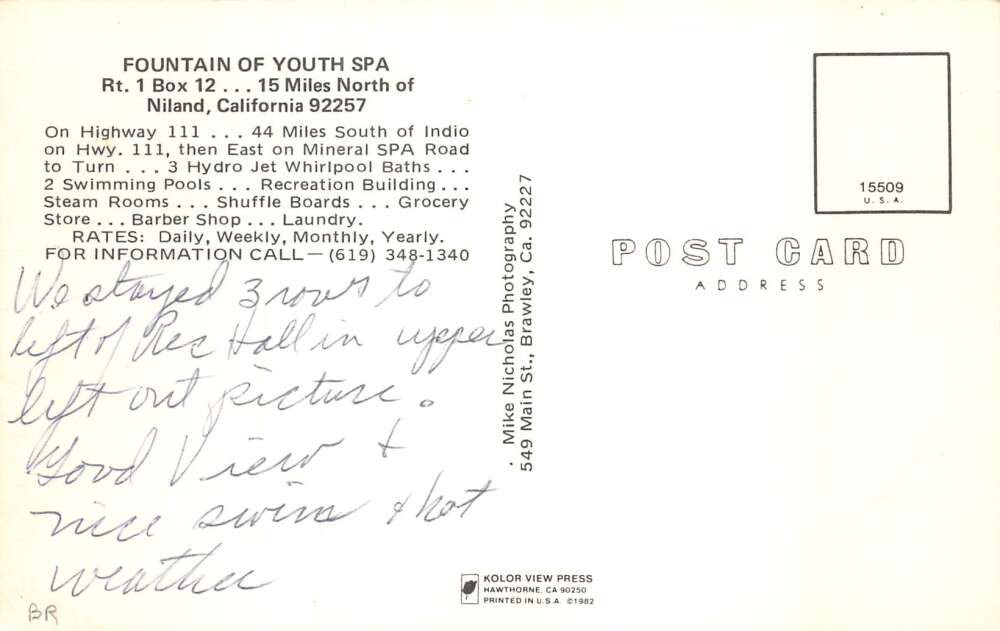 FOUNTAIN OF YOUTH SPA
Rt. 1 Box 12 . . . 15 Miles North of
Niland, California 92257
On Highway 111 . . . 44 Miles South of Indio
on Hwy. 111, then East on Mineral SPA Road
to Turn . . . 3 Hydro Jet Whirlpool Baths . . .
2 Swimming Pools . . . Recreation Building . . .
Steam Rooms . . . Shuffle Boards . . . Grocery
Store . . . Barber Shop . . . Laundry.
RATES: Daily, Weekly, Monthly, Yearly.
FOR INFORMATION CALL — (619) 348-1340
We stayed 3 rows to
left of Rec Hall in upper
left out picture.
Good View &
nice swim & hot
weather
BR
. Mike Nicholas Photography
549 Main St., Brawley, Ca. 92227
15509
U. S. A.
POST CARD
ADDRESS
KOLOR VIEW PRESS
HAWTHORNE, CA 90250
PRINTED IN U.S.A. ©1982